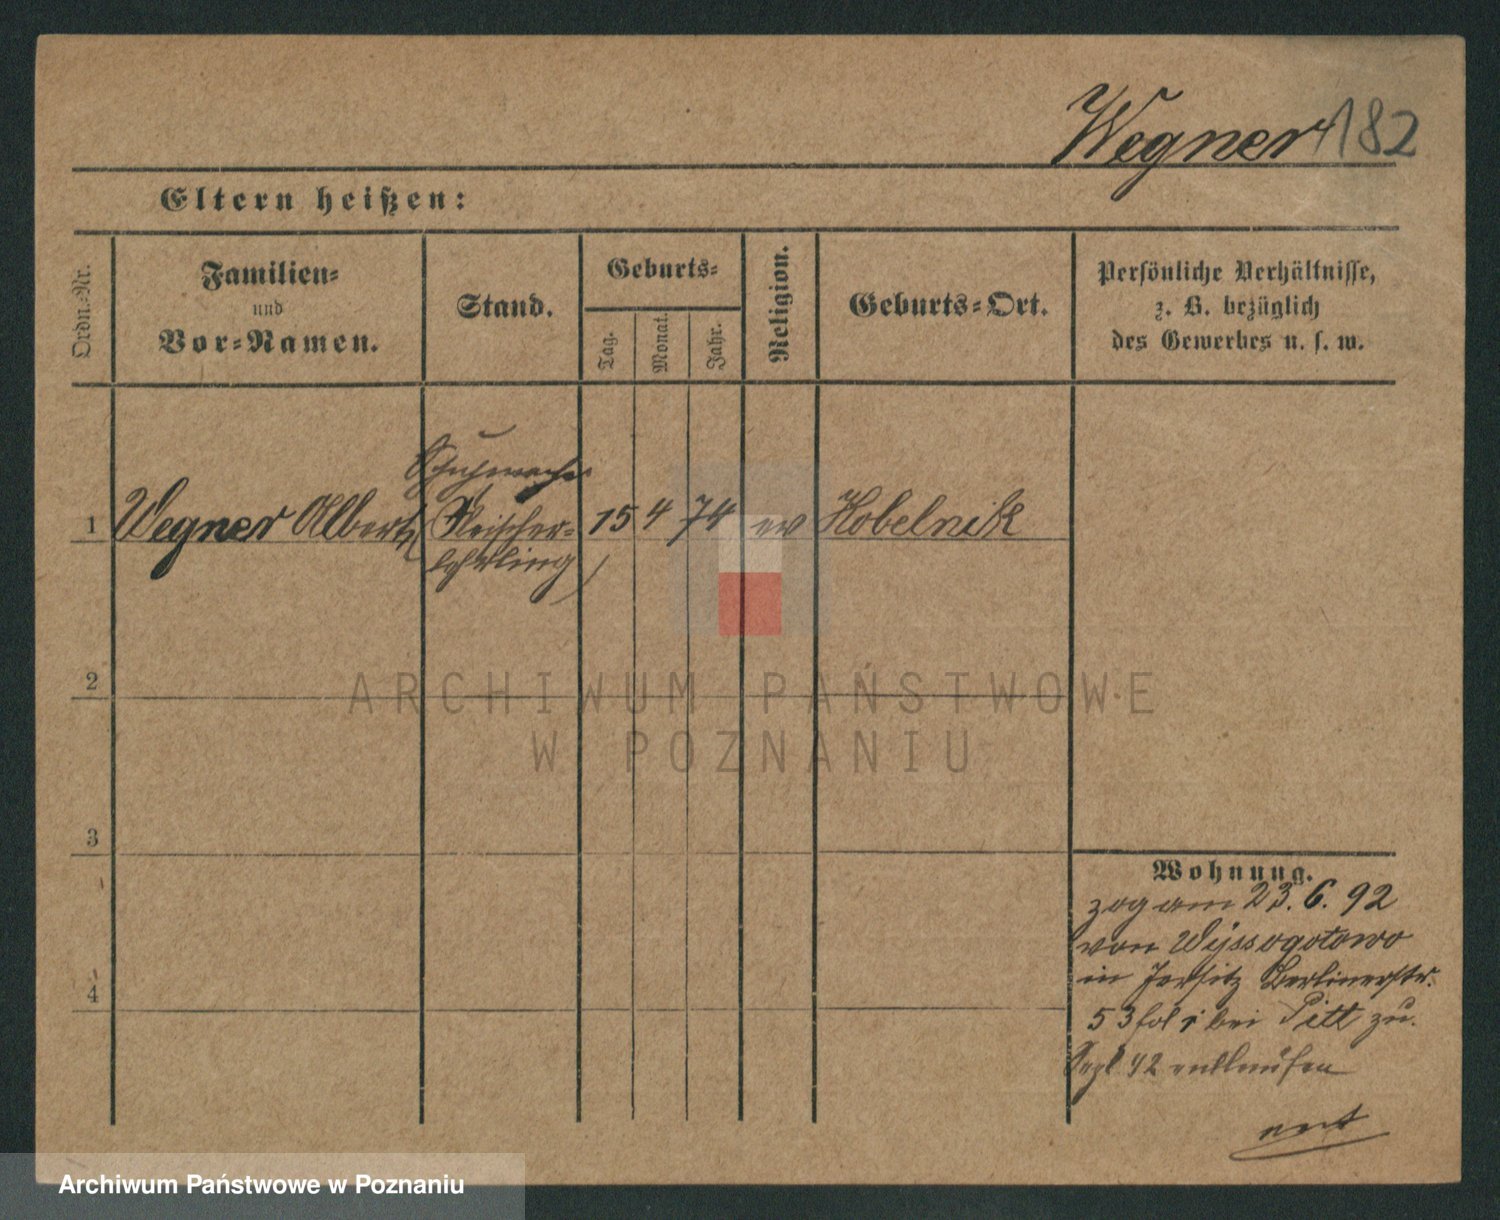 Wegner 182
Eltern heißen:
Ordn.=Nr.
Familien=
und
Vor=Namen.
Stand.
Geburts=
Tag.
Monat.
Jahr.
Religion.
Geburts=Ort.
Persönliche Verhältnisse,
z. B. bezüglich
des Gewerbes u. s. w.
Schuhmacher
1 Wegner Albert (Fleischer= 15 4 74 ev Kobelnik
lehrling)
2
3
4
Wohnung.
zog am 23. 6. 92
von Wyssogotowo
in Jersitz Berlinerstr.
53 bei Pitt zu.
Sept 92 entlaufen
ARCHIWUM PAŃSTWOWE
W POZNANIU
Archiwum Państwowe w Poznaniu